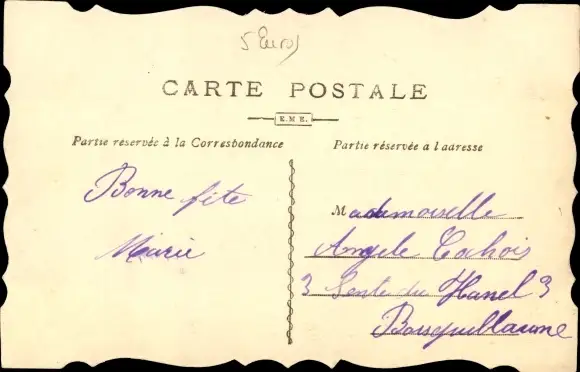 5 Euros
CARTE POSTALE
E.M.E.
Partie réservée à la Correspondance
Partie réservée a l'adresse
Bonne fête
Marie
Mademoiselle
Angele Cochois
3 Sente du Hanel 3
Bosseguillaume